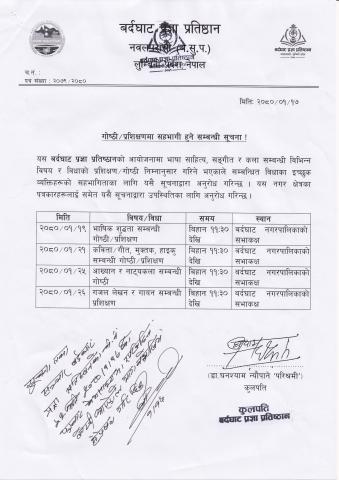 बर्दघाट प्रज्ञा प्रतिष्ठान
नवलपरासी (ब.सु.प.)
लुम्बिनी प्रदेश नेपाल
बर्दघाट प्रज्ञा प्रतिष्ठान
च.नं. :
पत्र संख्या : २०७९/२०८०
मिति: २०८०/०१/१७
गोष्ठी/प्रशिक्षणमा सहभागी हुने सम्बन्धी सूचना !
यस बर्दघाट प्रज्ञा प्रतिष्ठानको आयोजनामा भाषा साहित्य, सङ्गीत र कला सम्बन्धी विभिन्न
विषय र विधाको प्रशिक्षण/गोष्ठी निम्नानुसार गरिने भएकाले सम्बन्धित विधाका इच्छुक
व्यक्तिहरूको सहभागिताका लागि यसै सूचनाद्वारा अनुरोध गरिन्छ । यस नगर क्षेत्रका
पत्रकारहरूलाई समेत यसै सूचनाद्वारा उपस्थितिका लागि अनुरोध गरिन्छ ।
मिति विषय/विधा समय स्थान
२०८०/०१/१९ भाषिक शुद्धता सम्बन्धी गोष्ठी/प्रशिक्षण बिहान ११:३० देखि बर्दघाट नगरपालिकाको सभाकक्ष
२०८०/०१/२१ कविता/गीत, मुक्तक, हाइकु सम्बन्धी गोष्ठी/प्रशिक्षण बिहान ११:३० देखि बर्दघाट नगरपालिकाको सभाकक्ष
२०८०/०१/२५ आख्यान र नाट्यकला सम्बन्धी गोष्ठी/प्रशिक्षण बिहान ११:३० देखि बर्दघाट नगरपालिकाको सभाकक्ष
२०८०/०१/२६ गजल लेखन र गायन सम्बन्धी प्रशिक्षण बिहान ११:३० देखि बर्दघाट नगरपालिकाको सभाकक्ष
(डा.घनश्याम न्यौपाने 'परिश्रमी')
कुलपति
कुलपति
बर्दघाट प्रज्ञा प्रतिष्ठान